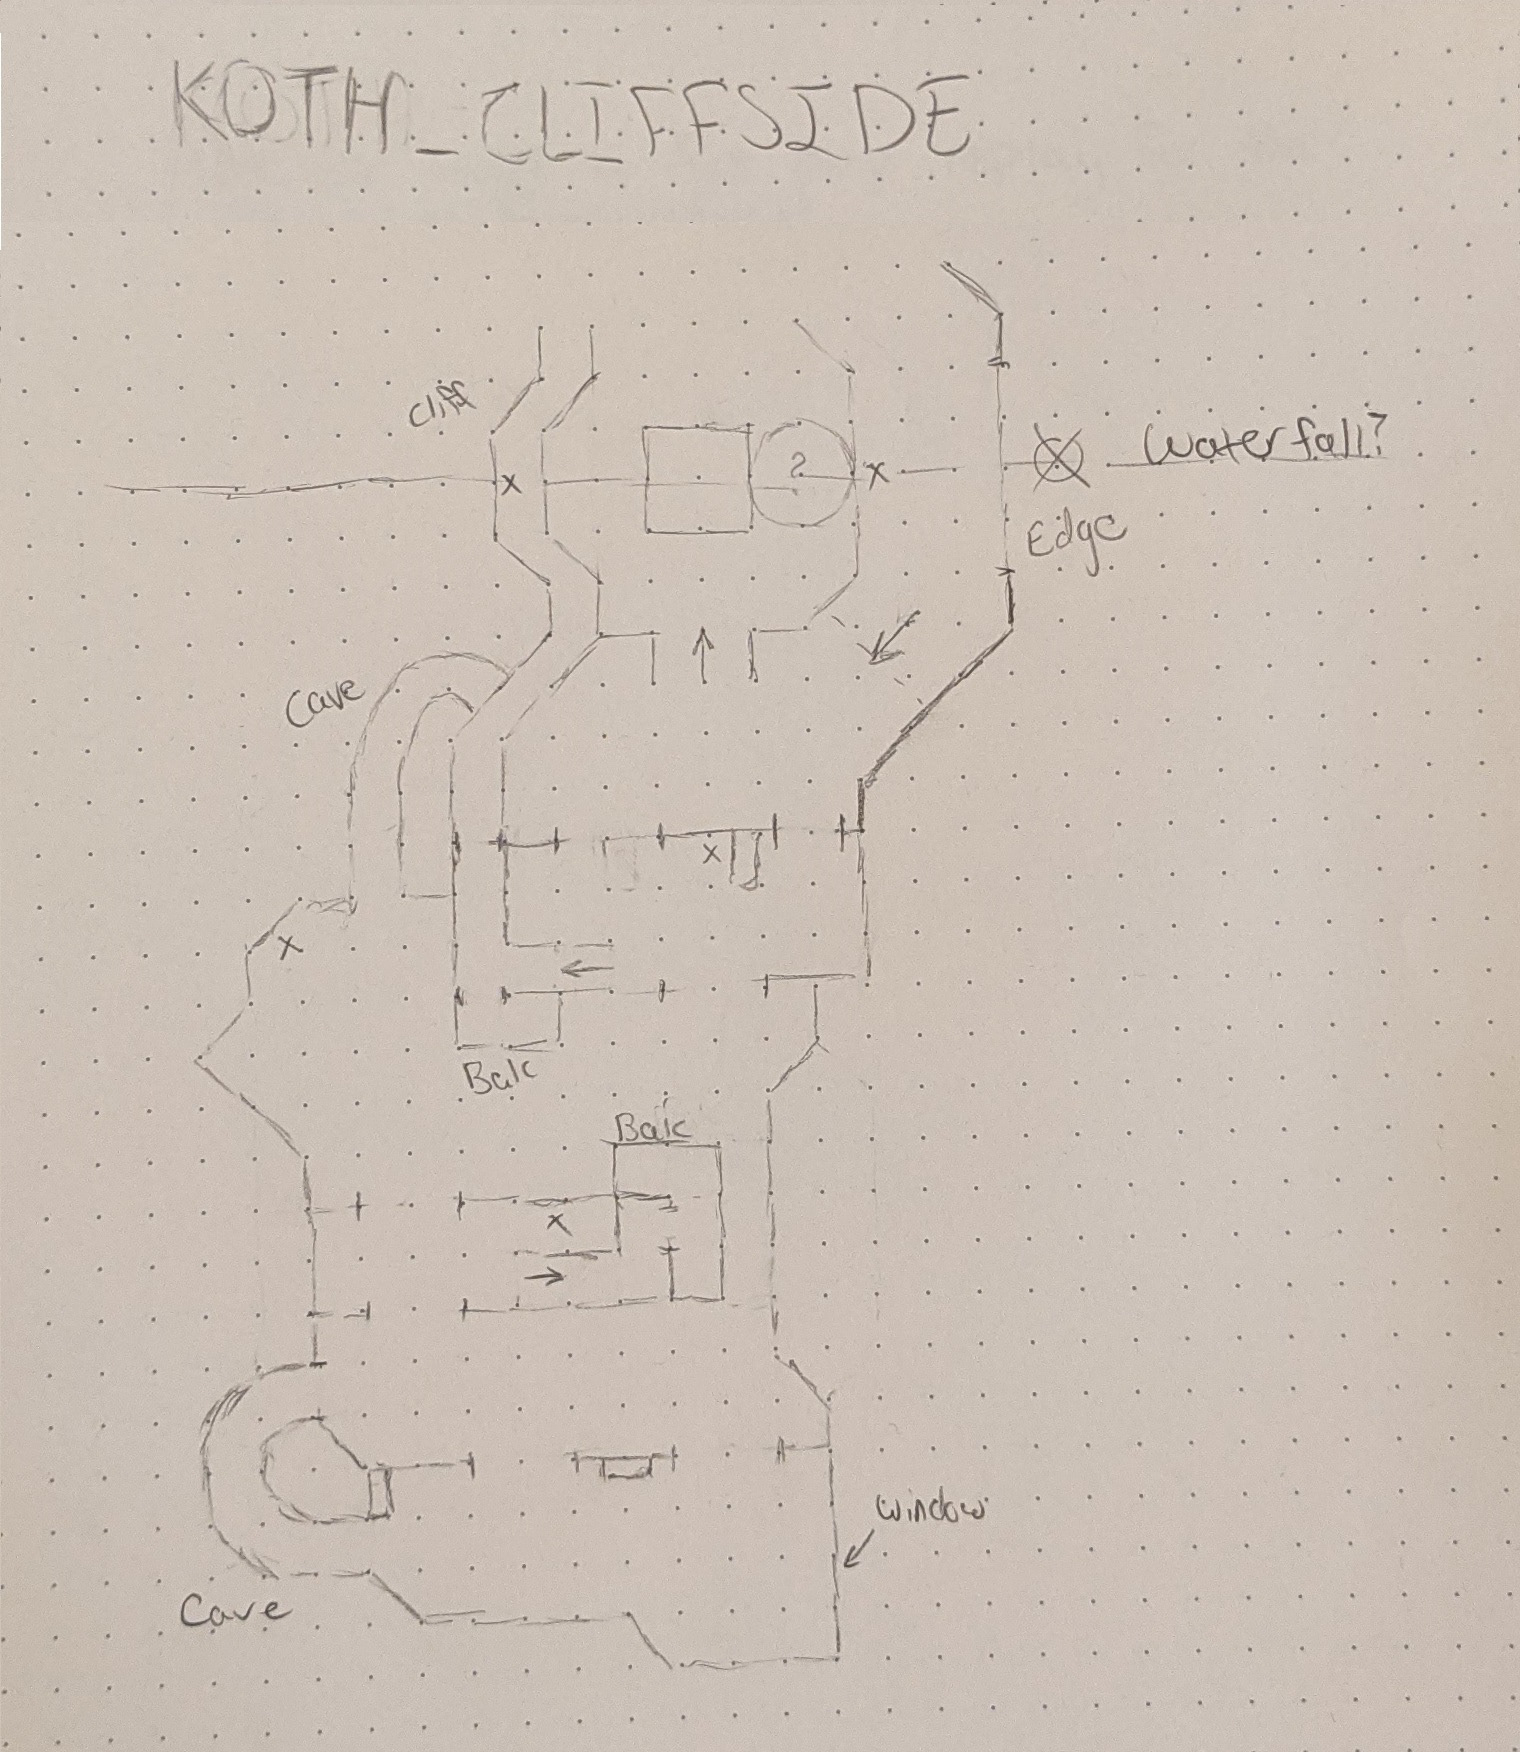 KOTH_CLIFFSIDE
Cliff
?
x
x
Waterfall?
Edge
Cave
x
x
Balc
Balc
x
Window
Cave